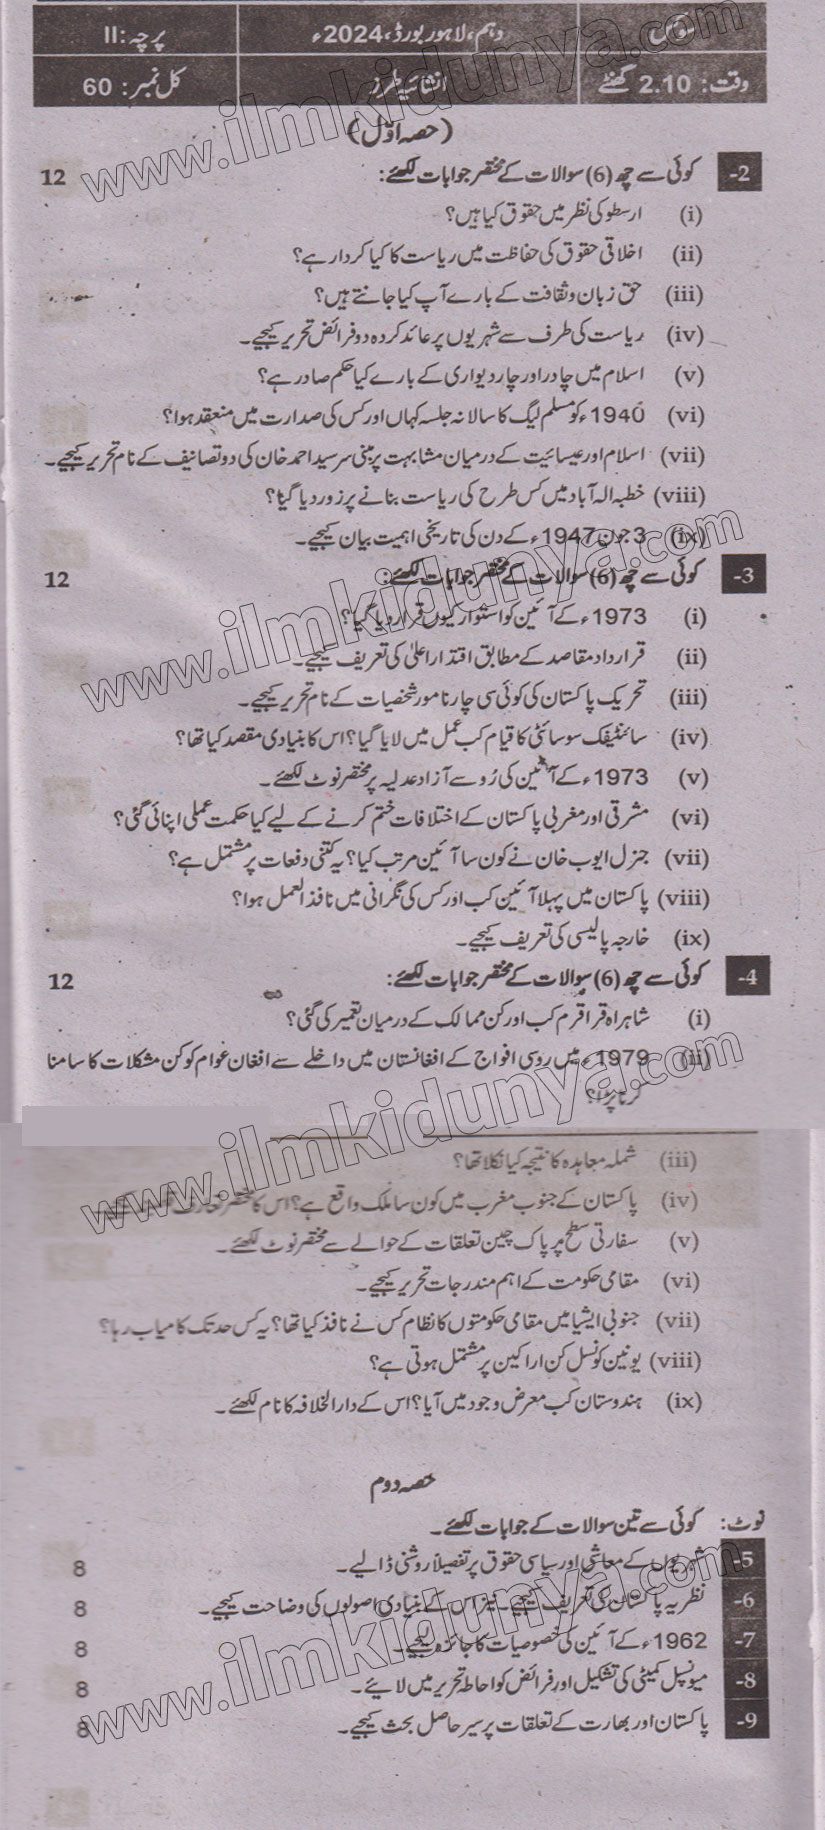 سوکس دہم، لاہور بورڈ، 2024ء پرچہ: II
وقت: 2.10 گھنٹے انشائیہ طرز کل نمبر: 60
(حصہ اوّل)
2- کوئی سے چھ (6) سوالات کے مختصر جوابات لکھئے: 12
(i) ارسطو کی نظر میں حقوق کیا ہیں؟
(ii) اخلاقی حقوق کی حفاظت میں ریاست کا کیا کردار ہے؟
(iii) حق زبان و ثقافت کے بارے آپ کیا جانتے ہیں؟
(iv) ریاست کی طرف سے شہریوں پر عائد کردہ دو فرائض تحریر کیجیے۔
(v) اسلام میں چادر اور چار دیواری کے بارے کیا حکم صادر ہے؟
(vi) 1940ء کو مسلم لیگ کا سالانہ جلسہ کہاں اور کس کی صدارت میں منعقد ہوا؟
(vii) اسلام اور عیسائیت کے درمیان مشابہت پر مبنی سرسید احمد خان کی دو تصانیف کے نام تحریر کیجیے۔
(viii) خطبہ الہ آباد میں کس طرح کی ریاست بنانے پر زور دیا گیا؟
(ix) 3 جون 1947ء کے دن کی تاریخی اہمیت بیان کیجیے۔
3- کوئی سے چھ (6) سوالات کے مختصر جوابات لکھئے: 12
(i) 1973ء کے آئین کو استوار کیوں قرار دیا گیا؟
(ii) قرارداد مقاصد کے مطابق اقتدار اعلیٰ کی تعریف کیجیے۔
(iii) تحریک پاکستان کی کوئی سی چار نامور شخصیات کے نام تحریر کیجیے۔
(iv) سائنٹیفک سوسائٹی کا قیام کب عمل میں لایا گیا؟ اس کا بنیادی مقصد کیا تھا؟
(v) 1973ء کے آئین کی رُو سے آزاد عدلیہ پر مختصر نوٹ لکھئے۔
(vi) مشرقی اور مغربی پاکستان کے اختلافات ختم کرنے کے لیے کیا حکمت عملی اپنائی گئی؟
(vii) جنرل ایوب خان نے کون سا آئین مرتب کیا؟ یہ کتنی دفعات پر مشتمل ہے؟
(viii) پاکستان میں پہلا آئین کب اور کس کی نگرانی میں نافذ العمل ہوا؟
(ix) خارجہ پالیسی کی تعریف کیجیے۔
4- کوئی سے چھ (6) سوالات کے مختصر جوابات لکھئے: 12
(i) شاہراہ قراقرم کب اور کن ممالک کے درمیان تعمیر کی گئی؟
(ii) 1979ء میں روسی افواج کے افغانستان میں داخلے سے افغان عوام کو کن مشکلات کا سامنا
کرنا پڑا؟
(iii) شملہ معاہدہ کا نتیجہ کیا نکلا تھا؟
(iv) پاکستان کے جنوب مغرب میں کون سا ملک واقع ہے؟ اس کا مختصر تعارف
(v) سفارتی سطح پر پاک چین تعلقات کے حوالے سے مختصر نوٹ لکھئے۔
(vi) مقامی حکومت کے اہم مندرجات تحریر کیجیے۔
(vii) جنوبی ایشیا میں مقامی حکومتوں کا نظام کس نے نافذ کیا تھا؟ یہ کس حد تک کامیاب رہا؟
(viii) یونین کونسل کن اراکین پر مشتمل ہوتی ہے؟
(ix) ہندوستان کب معرض وجود میں آیا؟ اس کے دارالخلافہ کا نام لکھئے۔
حصہ دوم
نوٹ: کوئی سے تین سوالات کے جوابات لکھئے۔
5- شہریوں کے معاشی اور سیاسی حقوق پر تفصیلاً روشنی ڈالیے۔ 8
6- نظریہ پاکستان کی تعریف کیجیے۔ نیز اس کے بنیادی اصولوں کی وضاحت کیجیے۔ 8
7- 1962ء کے آئین کی خصوصیات کا جائزہ لیجیے۔ 8
8- میونسپل کمیٹی کی تشکیل اور فرائض کو احاطہ تحریر میں لائیے۔ 8
9- پاکستان اور بھارت کے تعلقات پر سیر حاصل بحث کیجیے۔ 8
www.ilmkidunya.com
www.ilmkidunya.com
www.ilmkidunya.com
www.ilmkidunya.com